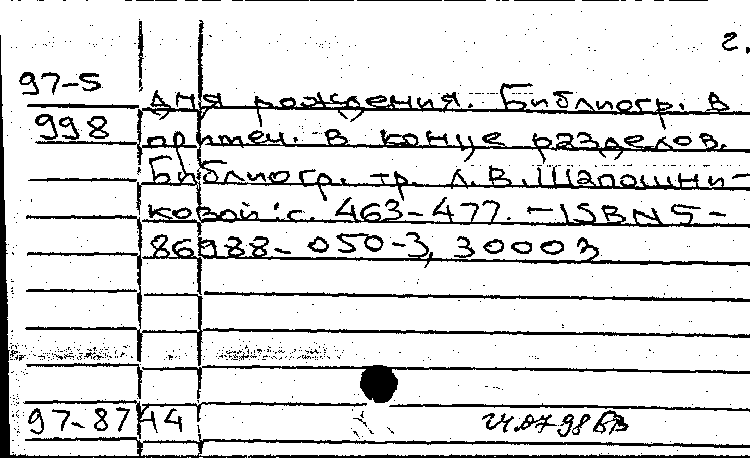 2.
97-5
дня рождения. Библиогр. в
998
примеч. в конце разделов.
Библиогр. тр. Л. В. Шапошни-
ковой: с. 463-477. - ISBN 5-
86988-050-3, 30003
97-8744
24.07.98 ВВ